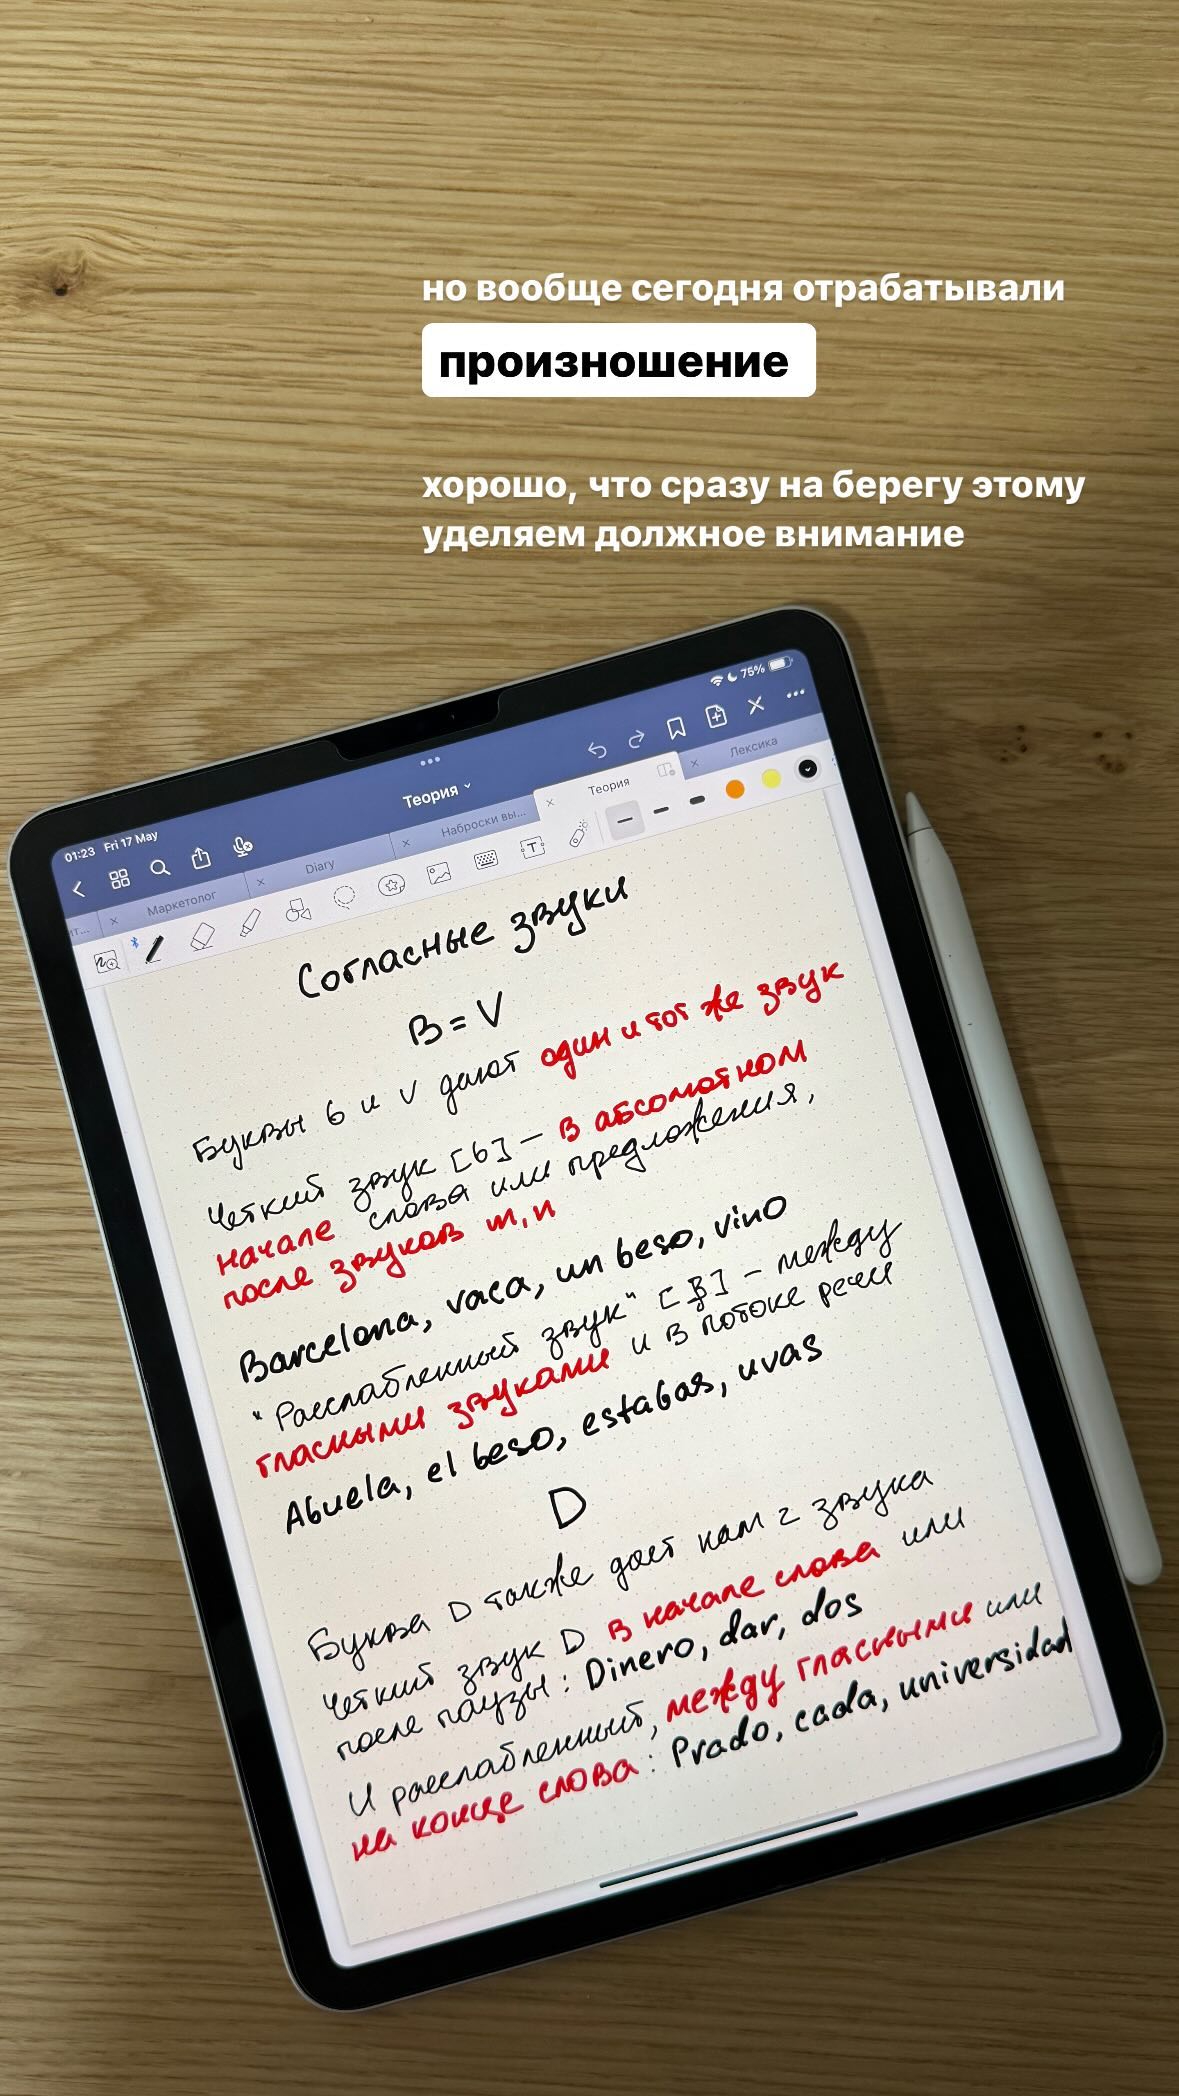 но вообще сегодня отрабатывали
произношение
хорошо, что сразу на берегу этому
уделяем должное внимание
01:23 Fri 17 May
75%
Теория
Маркетолог
Diary
Наброски вы...
Теория
Лексика
Согласные звуки
B = V
Буквы b и v дают один и тот же звук
Четкий звук [b] – в абсолютном
начале слова или предложения,
после звуков m, n
Barcelona, vaca, un beso, vino
"Расслабленный звук" [β] – между
гласными звуками и в потоке речи
Abuela, el beso, estabas, uvas
D
Буква D также дает нам 2 звука
Четкий звук D в начале слова или
после паузы: Dinero, dar, dos
И расслабленный, между гласными или
на конце слова: Prado, cada, universidad